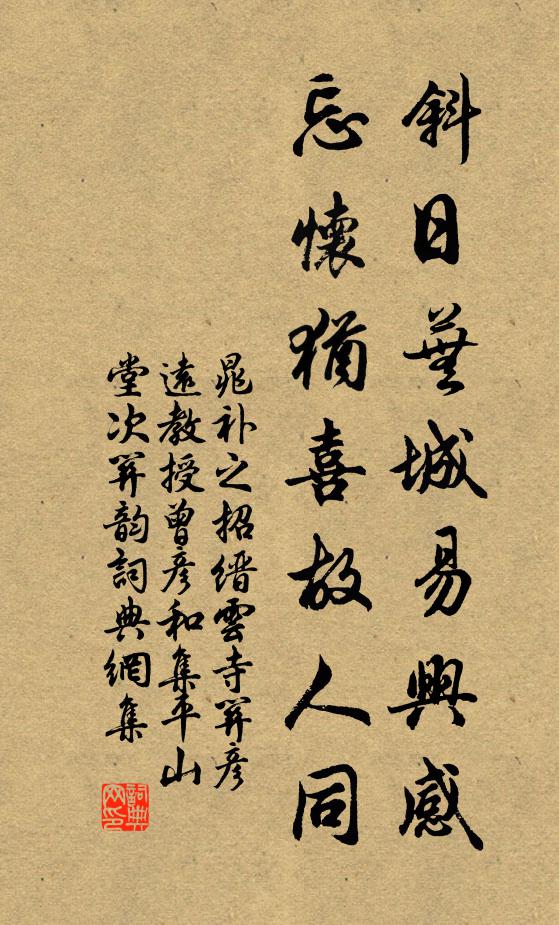 斜日蕪城易興感
忘懷猶喜故人同
晁补之招縉雲寺關彥
遠教授曾彥和集平山
堂次關韵詞典網集
詞典
网印